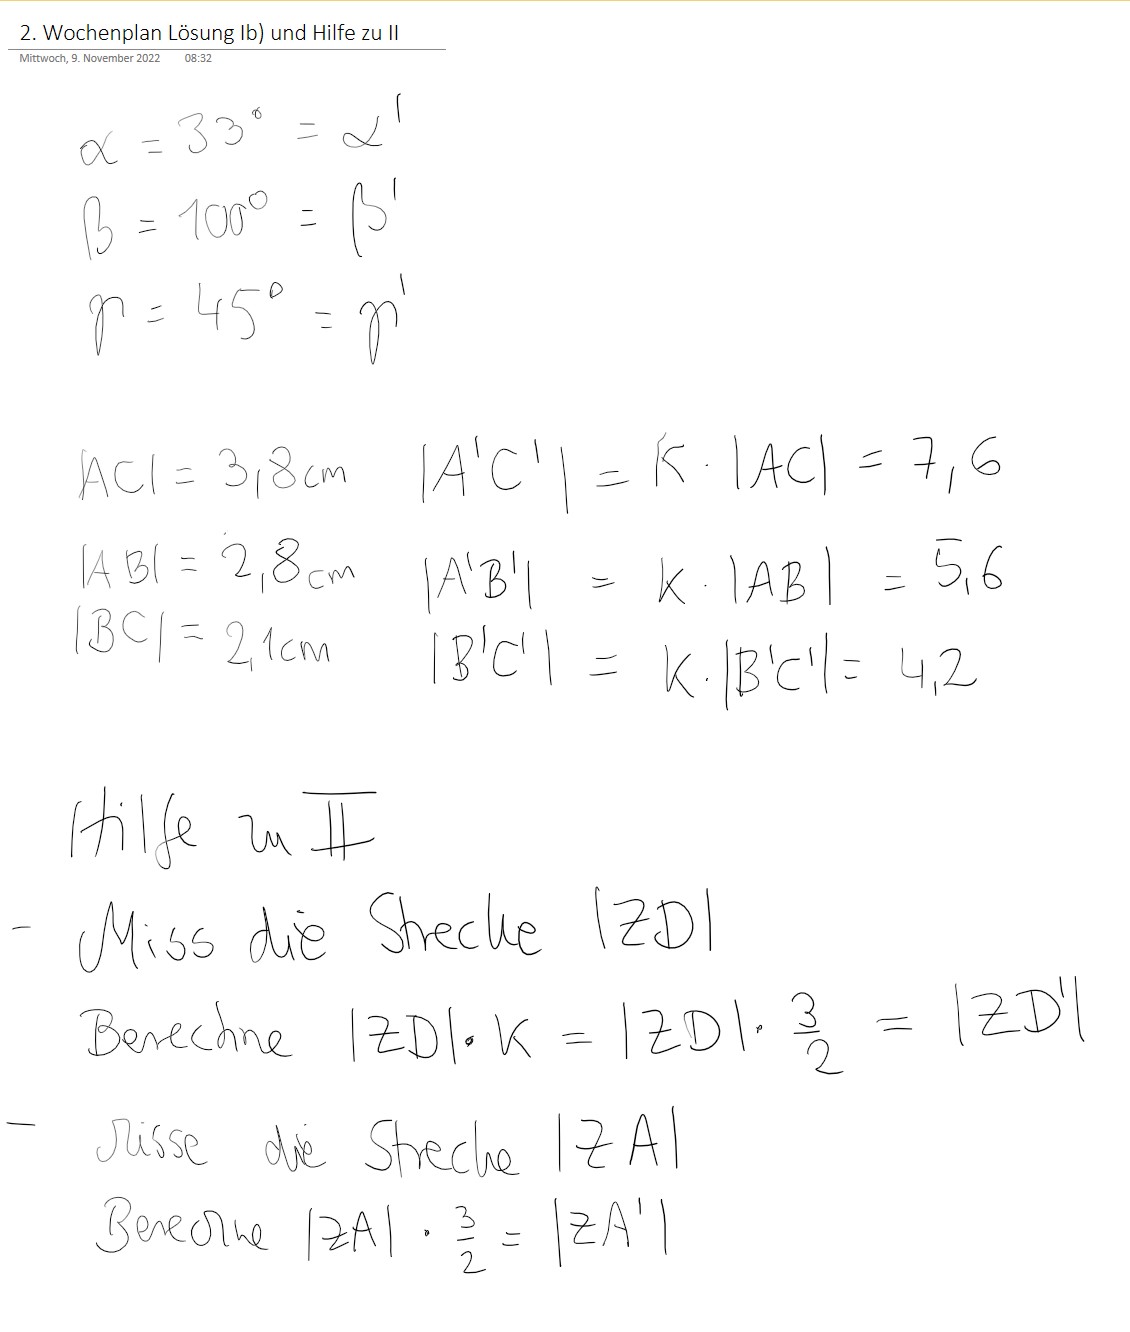 2. Wochenplan Lösung Ib) und Hilfe zu II
Mittwoch, 9. November 2022 08:32
α = 33° = α'
β = 100° = β'
γ = 45° = γ'
|AC| = 3,8cm |A'C'| = K · |AC| = 7,6
|AB| = 2,8cm |A'B'| = K · |AB| = 5,6
|BC| = 2,1cm |B'C'| = K · |B'C'| = 4,2
Hilfe zu II
- Miss die Strecke |ZD|
Berechne |ZD| · K = |ZD| · 3/2 = |ZD'|
- Misse die Strecke |ZA|
Berechne |ZA| · 3/2 = |ZA'|